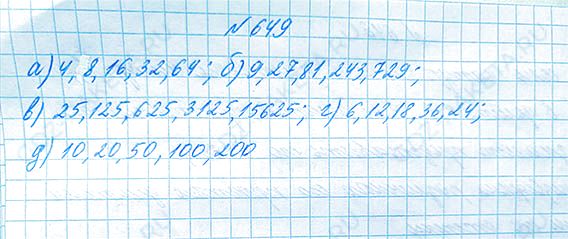 № 649
а) 4, 8, 16, 32, 64; б) 9, 27, 81, 243, 729;
в) 25, 125, 625, 3125, 15625; г) 6, 12, 18, 36, 24;
д) 10, 20, 50, 100, 200